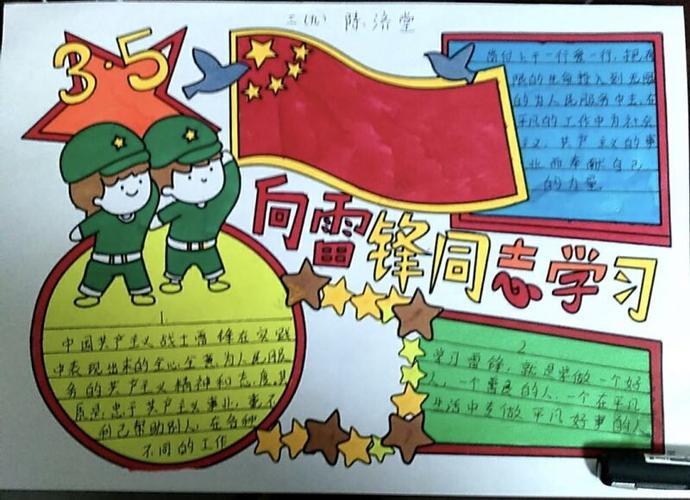 三(九) 陈济堂
3·5
岗位上干一行爱一行,把有
限的生命投入到无限
的为人民服务中去,在
平凡的工作中为社会
主义,共产主义的事
业而奉献自己
的力量。
向雷锋同志学习
1
中国共产主义战士雷锋在实践
中表现出来的全心全意为人民服
务的共产主义精神和态度,其
忠于共产主义事业,毫不
利己帮助别人,在各种
不同的工作
2
学习雷锋,就是学做一个好
人,一个善良的人,一个在平凡
生活中去做平凡好事的人